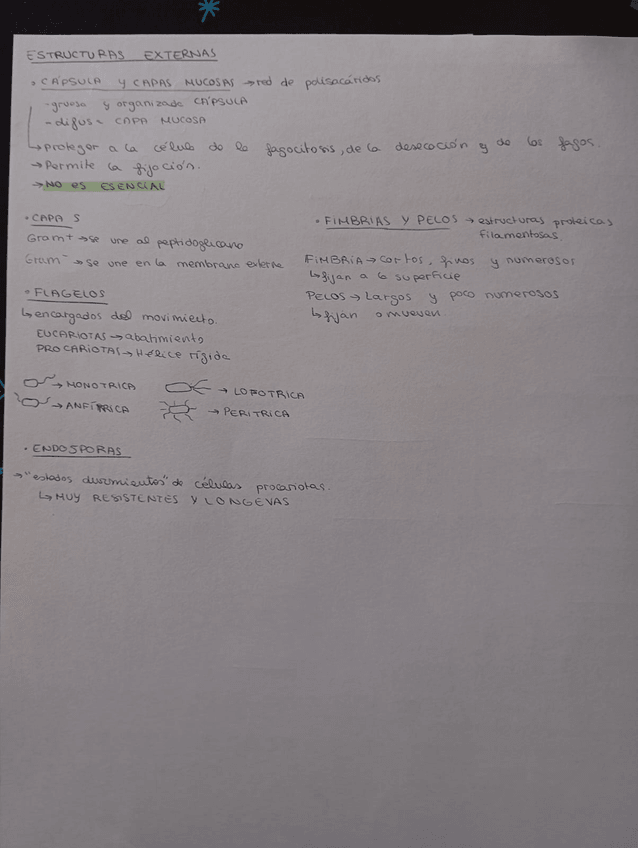 ESTRUCTURAS EXTERNAS
• CÁPSULA Y CAPAS MUCOSAS → red de polisacáridos
- grueso y organizado CÁPSULA
- difusa CAPA MUCOSA
↳ Proteger a la célula de la fagocitosis, de la desecación y de los fagos.
→ Permite la fijación.
→ NO ES ESENCIAL
• CAPA S
Gram+ → se une al peptidoglicano
Gram- → se une en la membrana externa
• FLAGELOS
↳ encargados del movimiento.
EUCARIOTAS → abatimiento
PROCARIOTAS → Hélice rígida
→ MONOTRICA
→ LOFOTRICA
→ ANFÍTRICA
→ PERITRICA
• FIMBRIAS Y PELOS → estructuras proteicas
filamentosas.
FIMBRIA → cortos, finos y numerosos
↳ fijan a la superficie
PELOS → Largos y poco numerosos
↳ fijan o mueven.
• ENDOSPORAS
→ "estados durmientes" de células procariotas.
↳ MUY RESISTENTES Y LONGEVAS